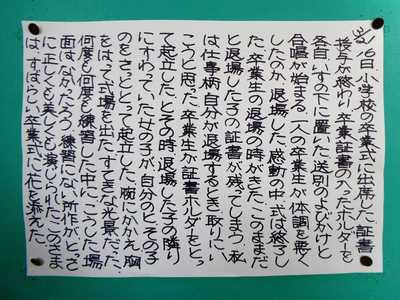 3/16日小学校の卒業式に出席した証書
授与が終り卒業証書の入ったホルダーを
各自いすの下に置いた送別のよびかけと
合唱が始まる一人の卒業生が体調を悪く
したのか退場した感動の中式は終了し
た卒業生の退場の時がきたこのままだ
と退場した子の証書が残ってしまう私
は仕事柄自分が退場するとき取りにい
こうと思った卒業生が証書ホルダーをとっ
て起立したとその時退場した子の隣り
にすわっていた女の子が自分のとその子
のをさっととって起立した腕にかかえ胸
をはって式場を出たすてきな光景だった
何度も何度も練習した中にこうした場
面はなかろう練習にない所作がとっさ
に正しくも美しくも演じられたこのさま
はすばらしい卒業式に花を添えた